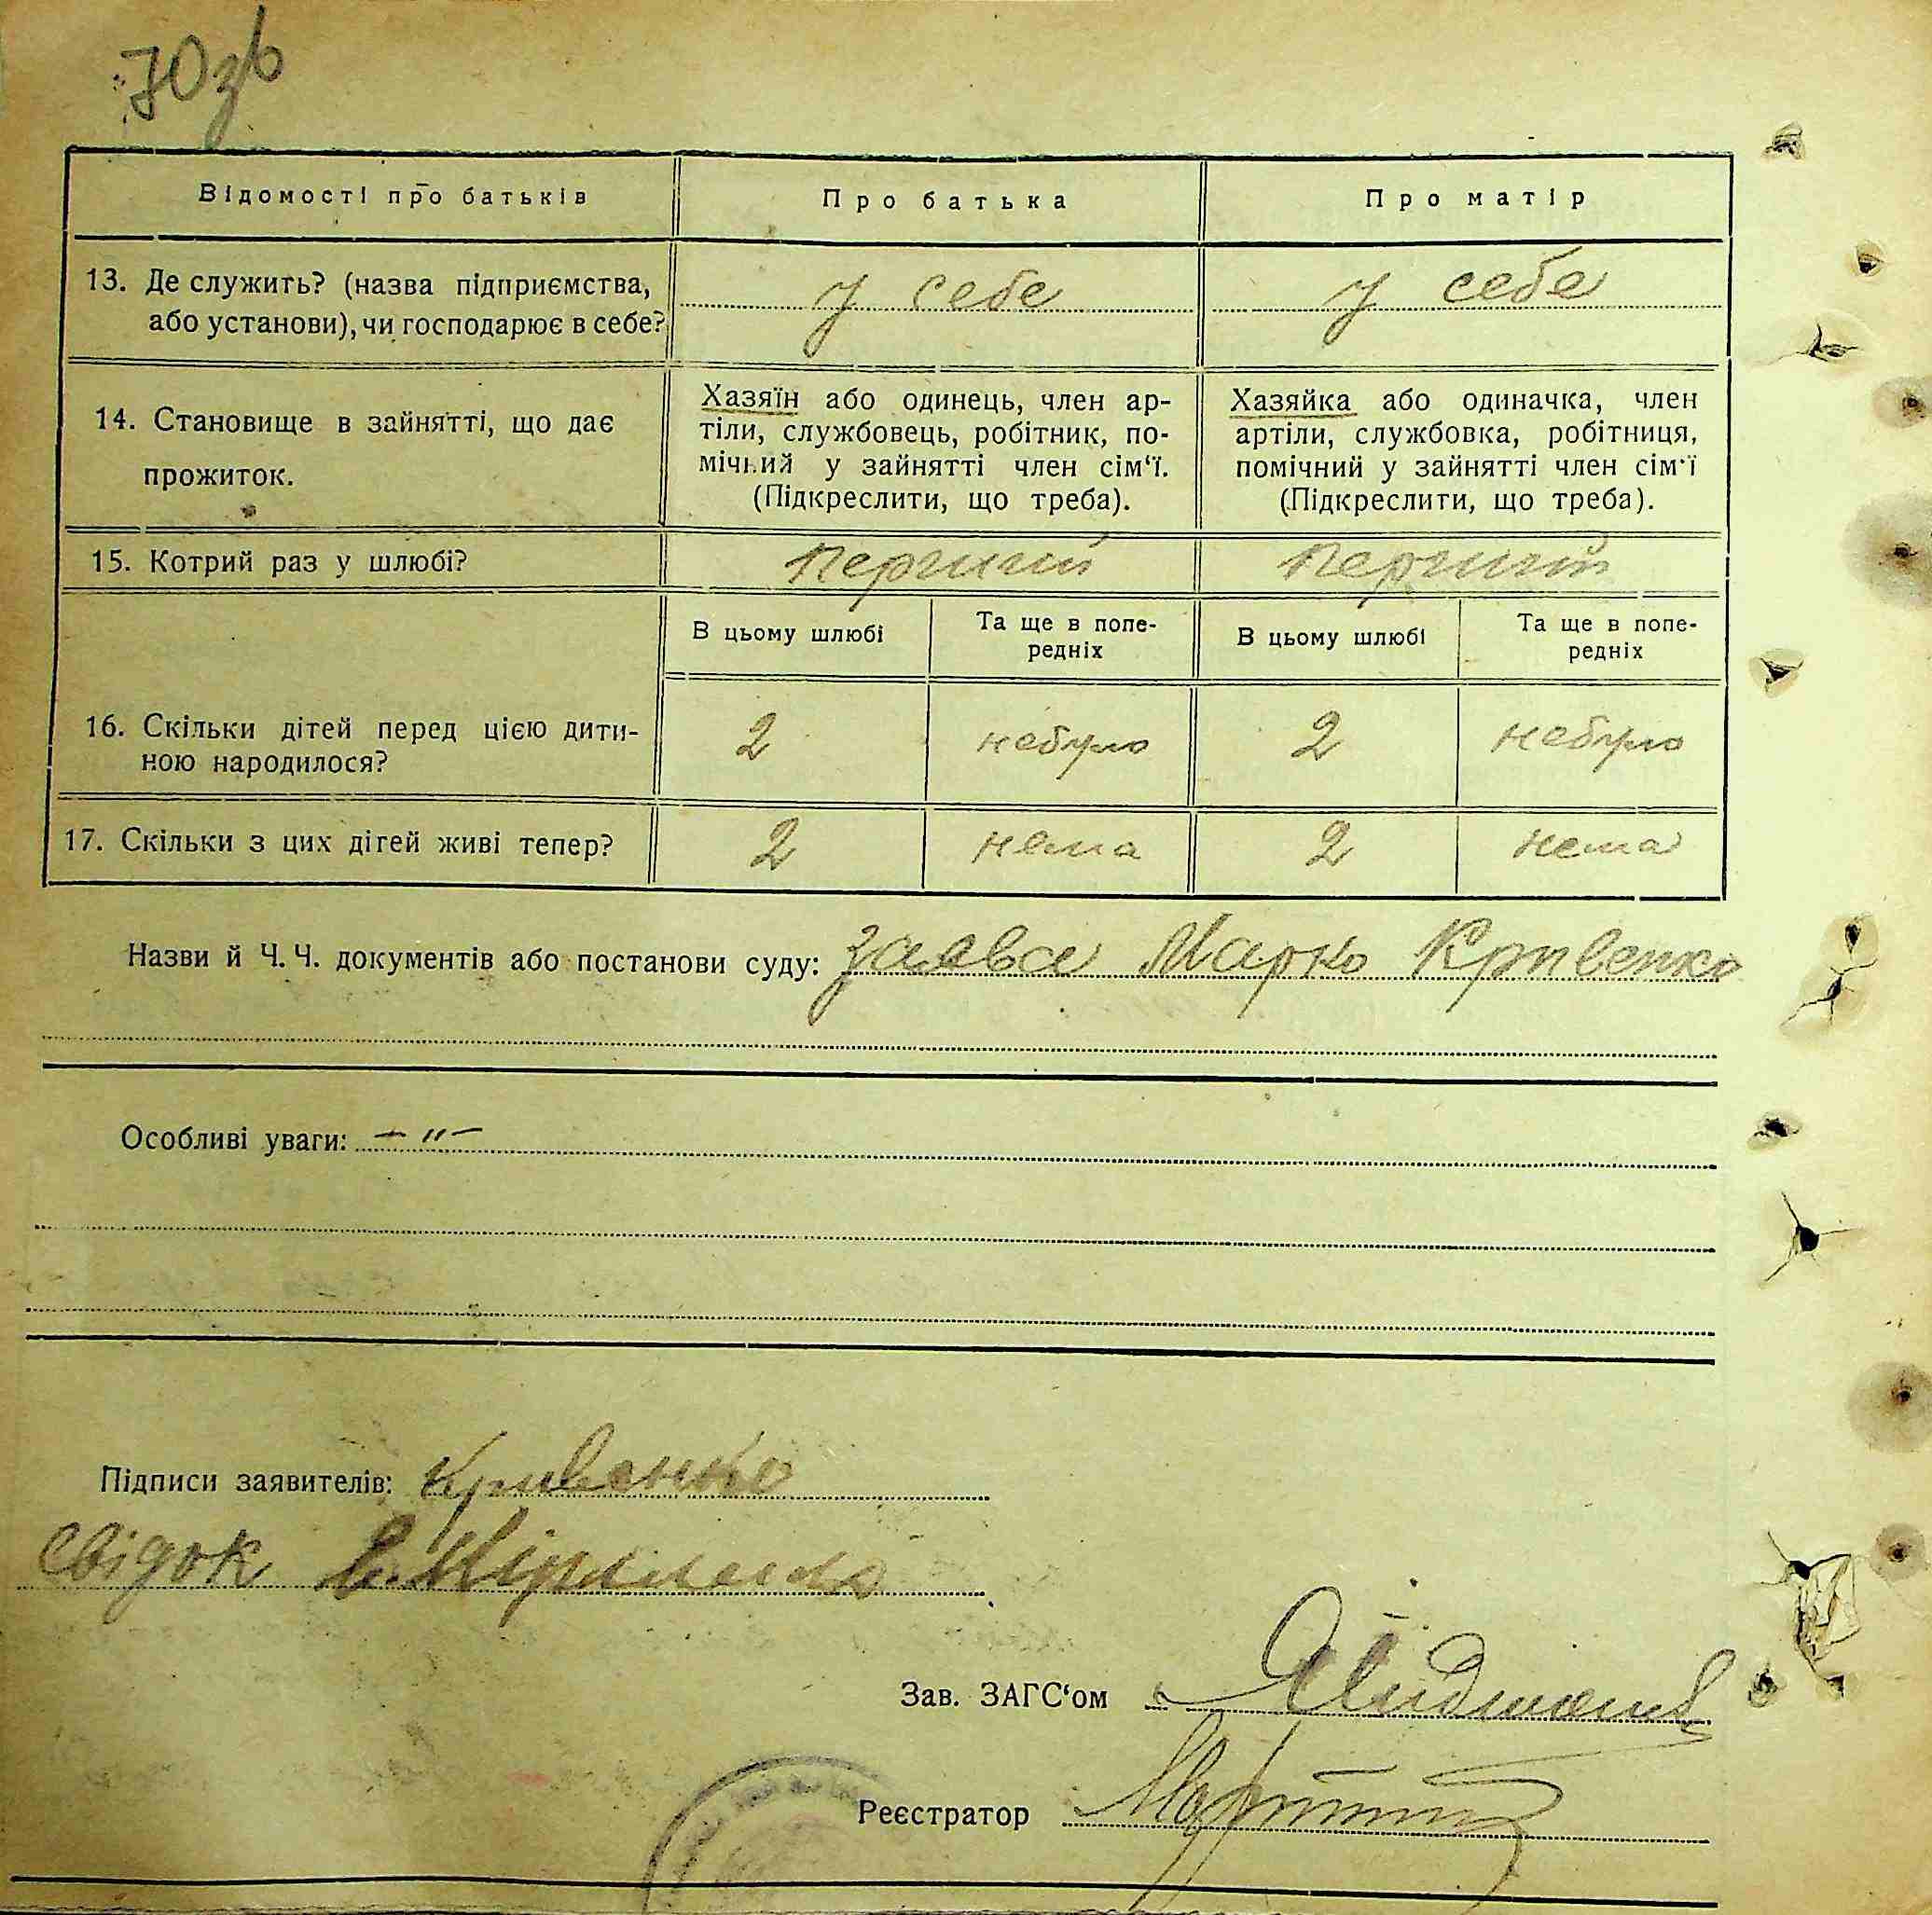 70зв
Відомості про батьків
Про батька
Про матір
13. Де служить? (назва підприємства,
або установи), чи господарює в себе?
у себе
у себе
14. Становище в зайнятті, що дає
прожиток.
Хазяїн або одинець, член ар-
тіли, службовець, робітник, по-
мічний у зайнятті член сім'ї.
(Підкреслити, що треба).
Хазяйка або одиначка, член
артіли, службовка, робітниця,
помічний у зайнятті член сім'ї
(Підкреслити, що треба).
15. Котрий раз у шлюбі?
перший
перший
В цьому шлюбі
Та ще в попе-
редніх
В цьому шлюбі
Та ще в попе-
редніх
16. Скільки дітей перед цією дити-
ною народилося?
2
небуло
2
небуло
17. Скільки з цих дігей живі тепер?
2
нема
2
нема
Назви й Ч. Ч. документів або постанови суду: заява Марко Кривенко
Особливі уваги: — " —
Підписи заявителів: Кривенко
свідок
Зав. ЗАГС'ом
Реєстратор